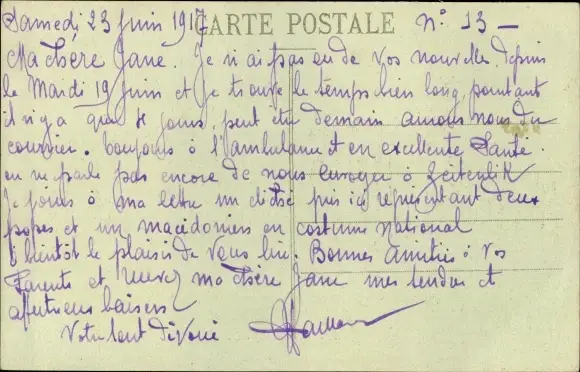 Samedi 23 juin 1917 CARTE POSTALE N° 13 —
Ma Chère Jane. Je n'ai pas eu de vos nouvelles depuis
le Mardi 19 juin et je trouve le temps bien long, pourtant
il n'y a que 4 jours, peut etre demain aurons nous du
courrier. toujours à l'ambulance et en excellente Santé.
on ne parle pas encore de nous envoyer à Zeitenlik
Je joins à ma lettre un cliché pris ici représentant deux
popes et un macédonien en costume National
à bientôt le plaisir de vous lire. Bonnes amitiés à vos
Parents et recevez ma Chère Jane mes tendres et
affectueux baisers
Votre tout dévoué